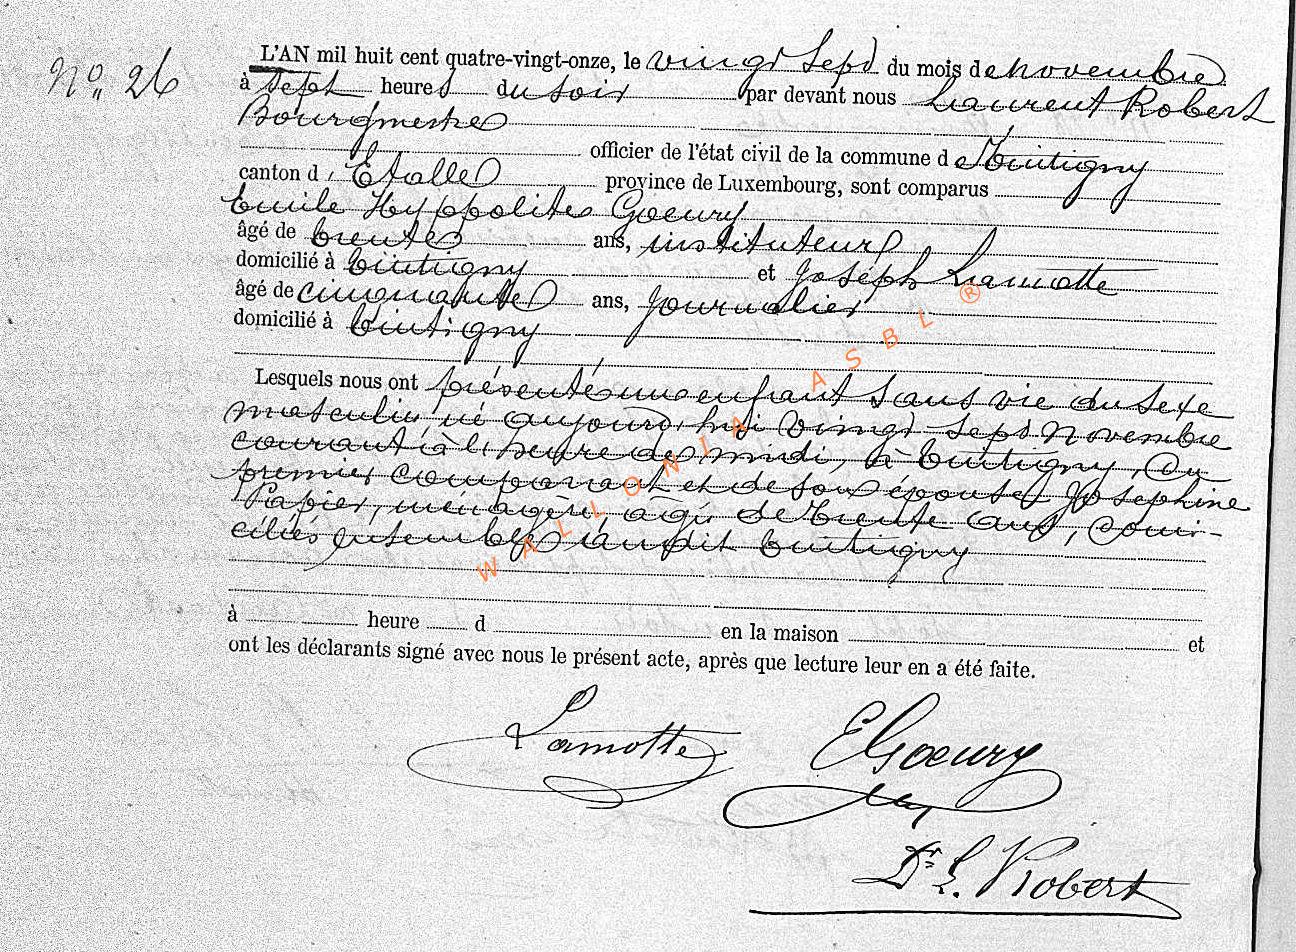 N° 26
L'AN mil huit cent quatre-vingt-onze, le vingt sept du mois de novembre
à sept heures du soir par devant nous Laurent Robert
Bourgmestre
officier de l'état civil de la commune de Tintigny
canton d'Etalle province de Luxembourg, sont comparus
Emile Hyppolite Goeury
âgé de trente ans, instituteur
domicilié à Tintigny et Joseph Lamotte
âgé de cinquante ans, journalier
domicilié à Tintigny
Lesquels nous ont présenté un enfant sans vie du sexe
masculin, né aujourd'hui vingt sept novembre
courant à l'heure de midi, à Tintigny, du
premier comparant et de son épouse Joséphine
Papier, ménagère, âgée de trente ans, domi-
ciliés ensemble audit Tintigny
à heure d en la maison et
ont les déclarants signé avec nous le présent acte, après que lecture leur en a été faite.
Lamotte EGoeury
Dr L. Robert
WALLONIA ASBL ®